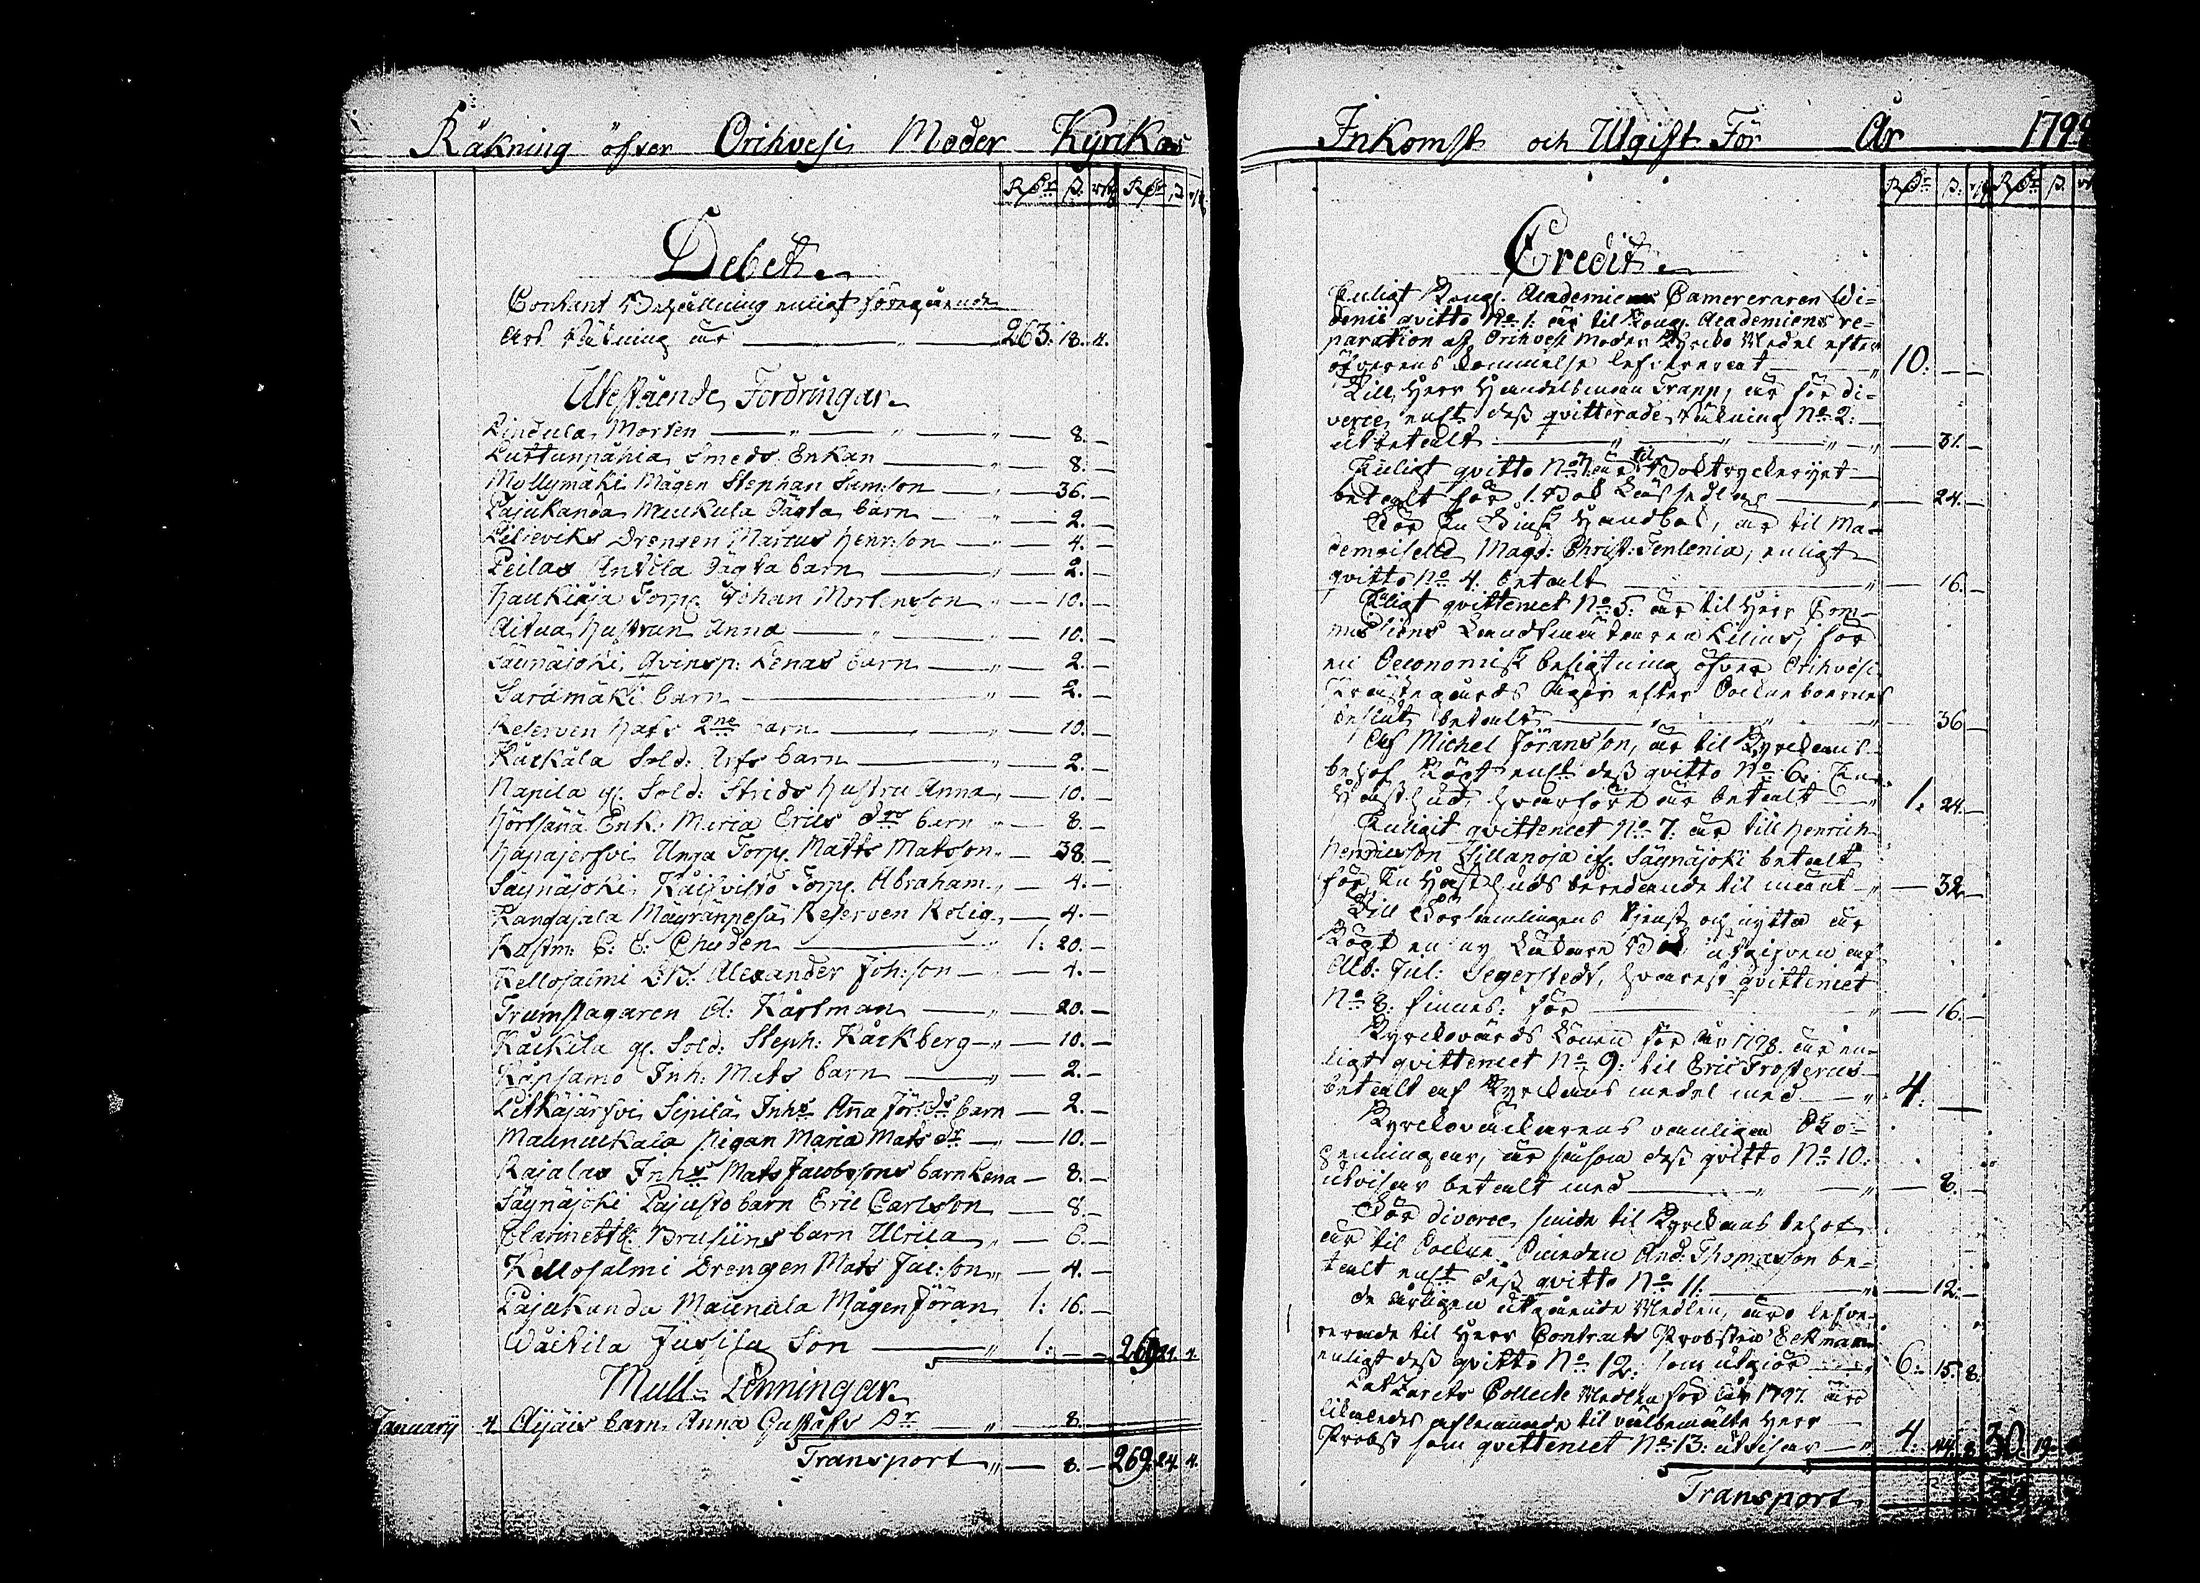 Räkning öfver Orihvesi Moder Kyrkas
Rdr ß. rst Rdr ß rst
Debet.
Contant Behållning enligt föregående
Års Räkning är 263. 18. 4.
Utestående Fordringar.
Lindula Morten 8.
Smeds Enkan 8.
Mollymäki Mågen Stephan Sam:son 36.
Pajukanda Maukula Pägta barn 2.
Lilieviks Drengen Marcus Henr:son 4.
Peilas Antila barn 2.
Haukiaja Torp. Johan Mortenson 10.
Aitua Hustrun Anna 10.
Säynäjoki Qvinsp: Lenas barn 2.
Sarámäki barn 2.
Reserven Hats 2ne barn 10.
Kärkälä Sold: Arfs barn 2.
Napila gl. Sold: Strids Hustru Anna 10.
Enk: Maria Erics dr barn 8.
Hapajerfvi Unga Torp. Matts Matson 38.
Säynäjoki Koifvisto Torp. Abraham 4.
Kangasala Mäyränpesä Reserven Rolig 4.
Kustm: C: E: Chuden 1: 20.
Kellosalmi Alexander Joh:son 4.
Trumslagaren A: Karlman 20.
Kärkilä gl. Sold: Steph: Kärkberg 10.
Käpsamo Inh: Mats barn 2.
Litkäjärfvi Sipilä Inhs Anna Jör: ds barn 2.
Maunukala Pigan Maria Mats dr 10.
Rajalas Inhs Mats Jacobssons barn Lena 8.
Säynäjoki Pajusto barn Eric Carlsson 8.
Clarinettbl: Brusiins barn Ulrica 6.
Kellosalmi Drengen Mats Jac:son 4.
Pajukanda Maunula Mågen Jöran 1: 16.
Wäikilä Jusila Son 1: 269. 24. 4.
Mull-Penningar
January 4. Äijäis barn Anna Gustafs Dr 8.
Transport 8. 269. 24. 4.
Inkomst och Utgift För År 1799
Rdr ß. rst Rdr ß. rst
Credit.
Enligt Kongl. Academiens Camereraren Wi=
denii qvitto No 1. är til Kongl. Academiens re=
paration af Orihvesi Moder Kyrko Medel efter
öfverens kommelse lefvererat 10.
Till Herr Handelsman Trapp, är för di=
verse, enl:t dess qvitterade räkning No 2:
utbetalt 31.
Enligt qvitto No är til Boktryckeriet
betalt för 1. Bok 24.
För En Finsk Handbok, är til Ma=
demoiselle Magd: Christ: Tenlenia, enligt
qvitto No 4. betalt 16.
Enligt qvittencet No 5: är til Herr Com=
missions Landtmätaren Lilius, för
en Oeconomisk besigtning öfver Orihvesi
Prästegårds Ägor efter Socknboernes
beslut, betalt 36.
Af Michel Jöransson, är til Kyrckans
behof köpt enl:t dess qvitto No 6. En
Hästhud, hvarföre är betalt 1. 24.
Enligit qvittencet No 7: är till Henrich
Hendricsson Sillanoja ifr. Säynäjoki betalt
för En Hästhuds beredande til 32.
Till Församlingens tjenst och nytta är
köpt en ny Läkare Bok utgifven af
Alb: Jul: Segerstedt, hvarest qvittencet
No 8: finnes: för 16.
Kyrckovärds Lönen för År 1798. är en=
ligt qvittencet No 9: til Eric Frosterus
betalt af Kyrckans medel med 4.
Kyrckovacktarens vanligen Sko=
penningar, är såsom dess qvitto No 10:
utvisar betalt med 8.
För diverse smide til Kyrckans behof
är til Sockne Smeden And: Thomasson be=
talt enl:t dess qvitto No 11: 12.
De årligen utgående Medlen, äro lefve=
rerade til Herr Contracts Probsten Eckman
enligt dess qvitto No 12: som utgiör 6. 15. 8.
Latzarets Collecte Medlen för År 1797. äro
likaledes aflemnade til välbemälte Herr
Probst som qvittencet No 13: utvisar 4. 44. 8. 30. 19.
Transport